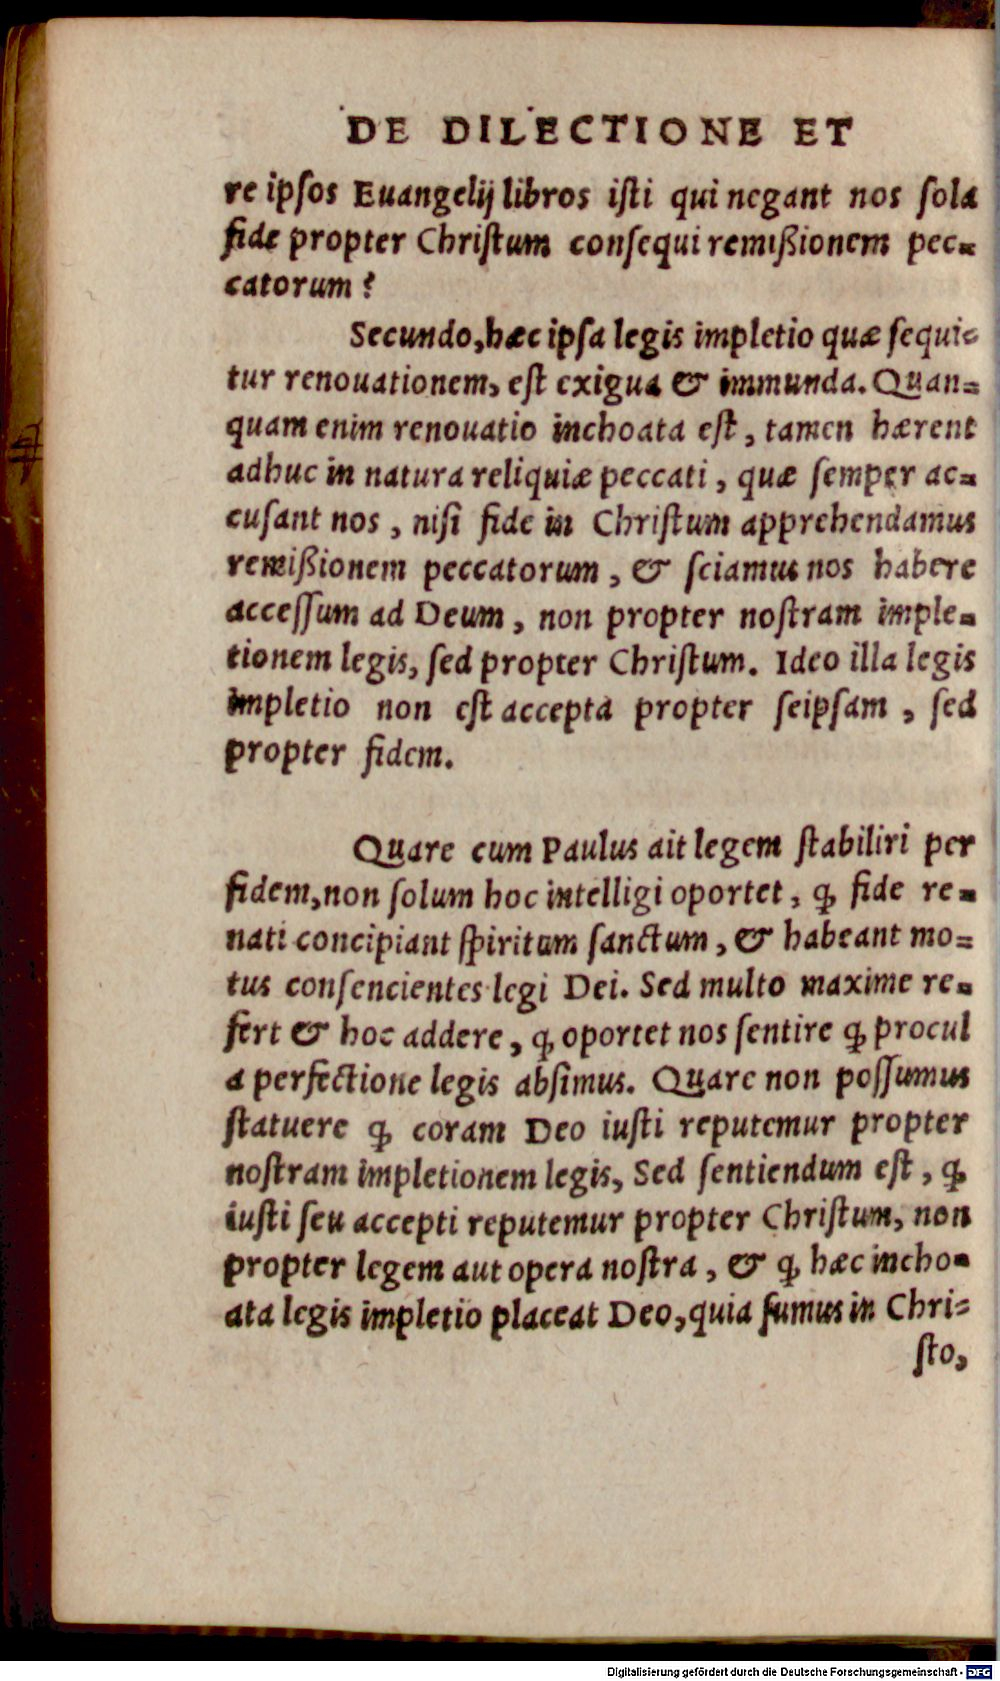 DE DILECTIONE ET
re ipſos Euangelij libros iſti qui negant nos ſola
fide propter Chriſtum conſequi remißionem pec-
catorum?
Secundo, hæc ipſa legis impletio quæ ſequi-
tur renouationem, eſt exigua & immunda. Quan-
quam enim renouatio inchoata eſt, tamen hærent
adhuc in natura reliquiæ peccati, quæ ſemper ac-
cuſant nos, niſi fide in Chriſtum apprehendamus
remißionem peccatorum, & ſciamus nos habere
acceſſum ad Deum, non propter noſtram imple-
tionem legis, ſed propter Chriſtum. Ideo illa legis
impletio non eſt accepta propter ſeipſam, ſed
propter fidem.
Quare cum Paulus ait legem ſtabiliri per
fidem, non ſolum hoc intelligi oportet, ꝙ fide re-
nati concipiant ſpiritum ſanctum, & habeant mo-
tus conſencientes legi Dei. Sed multo maxime re-
fert & hoc addere, ꝙ oportet nos ſentire ꝙ procul
a perfectione legis abſimus. Quare non poſſumus
ſtatuere ꝙ coram Deo iuſti reputemur propter
noſtram impletionem legis, Sed ſentiendum eſt, ꝙ
iuſti ſeu accepti reputemur propter Chriſtum, non
propter legem aut opera noſtra, & ꝙ hæc incho-
ata legis impletio placeat Deo, quia ſumus in Chri-
ſto,
Digitalisierung gefördert durch die Deutsche Forschungsgemeinschaft - DFG